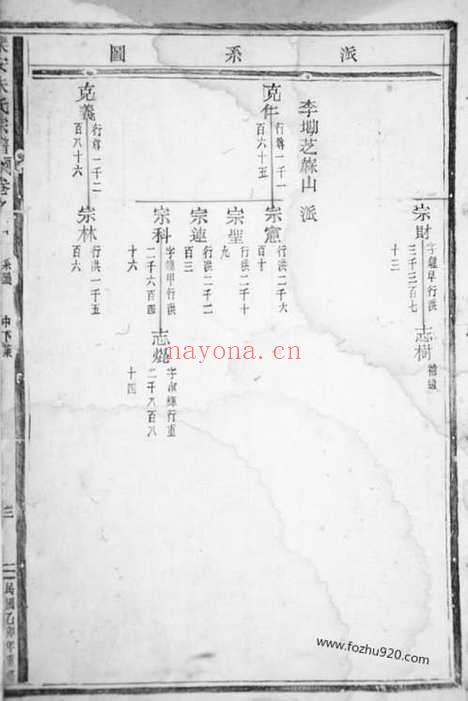 派系圖
宗財
字龍甲行洪
三千三百七
十三
志樹
禮遠
李㘭芝蔴山派
克仁
行尊一千一
百六十五
宗憲
行洪二千六
百十
宗聖
行洪二千十
九
宗連
行洪二千二
百三
宗科
字龍甲行洪
二千六百四
十六
志焜
行重
二千八百八
十四
克義
行尊一千二
百八十六
宗林
行洪一千五
百六
氏宗譜
系圖
三
民國乙卯年重
nayona.cn
www.fozhu920.com